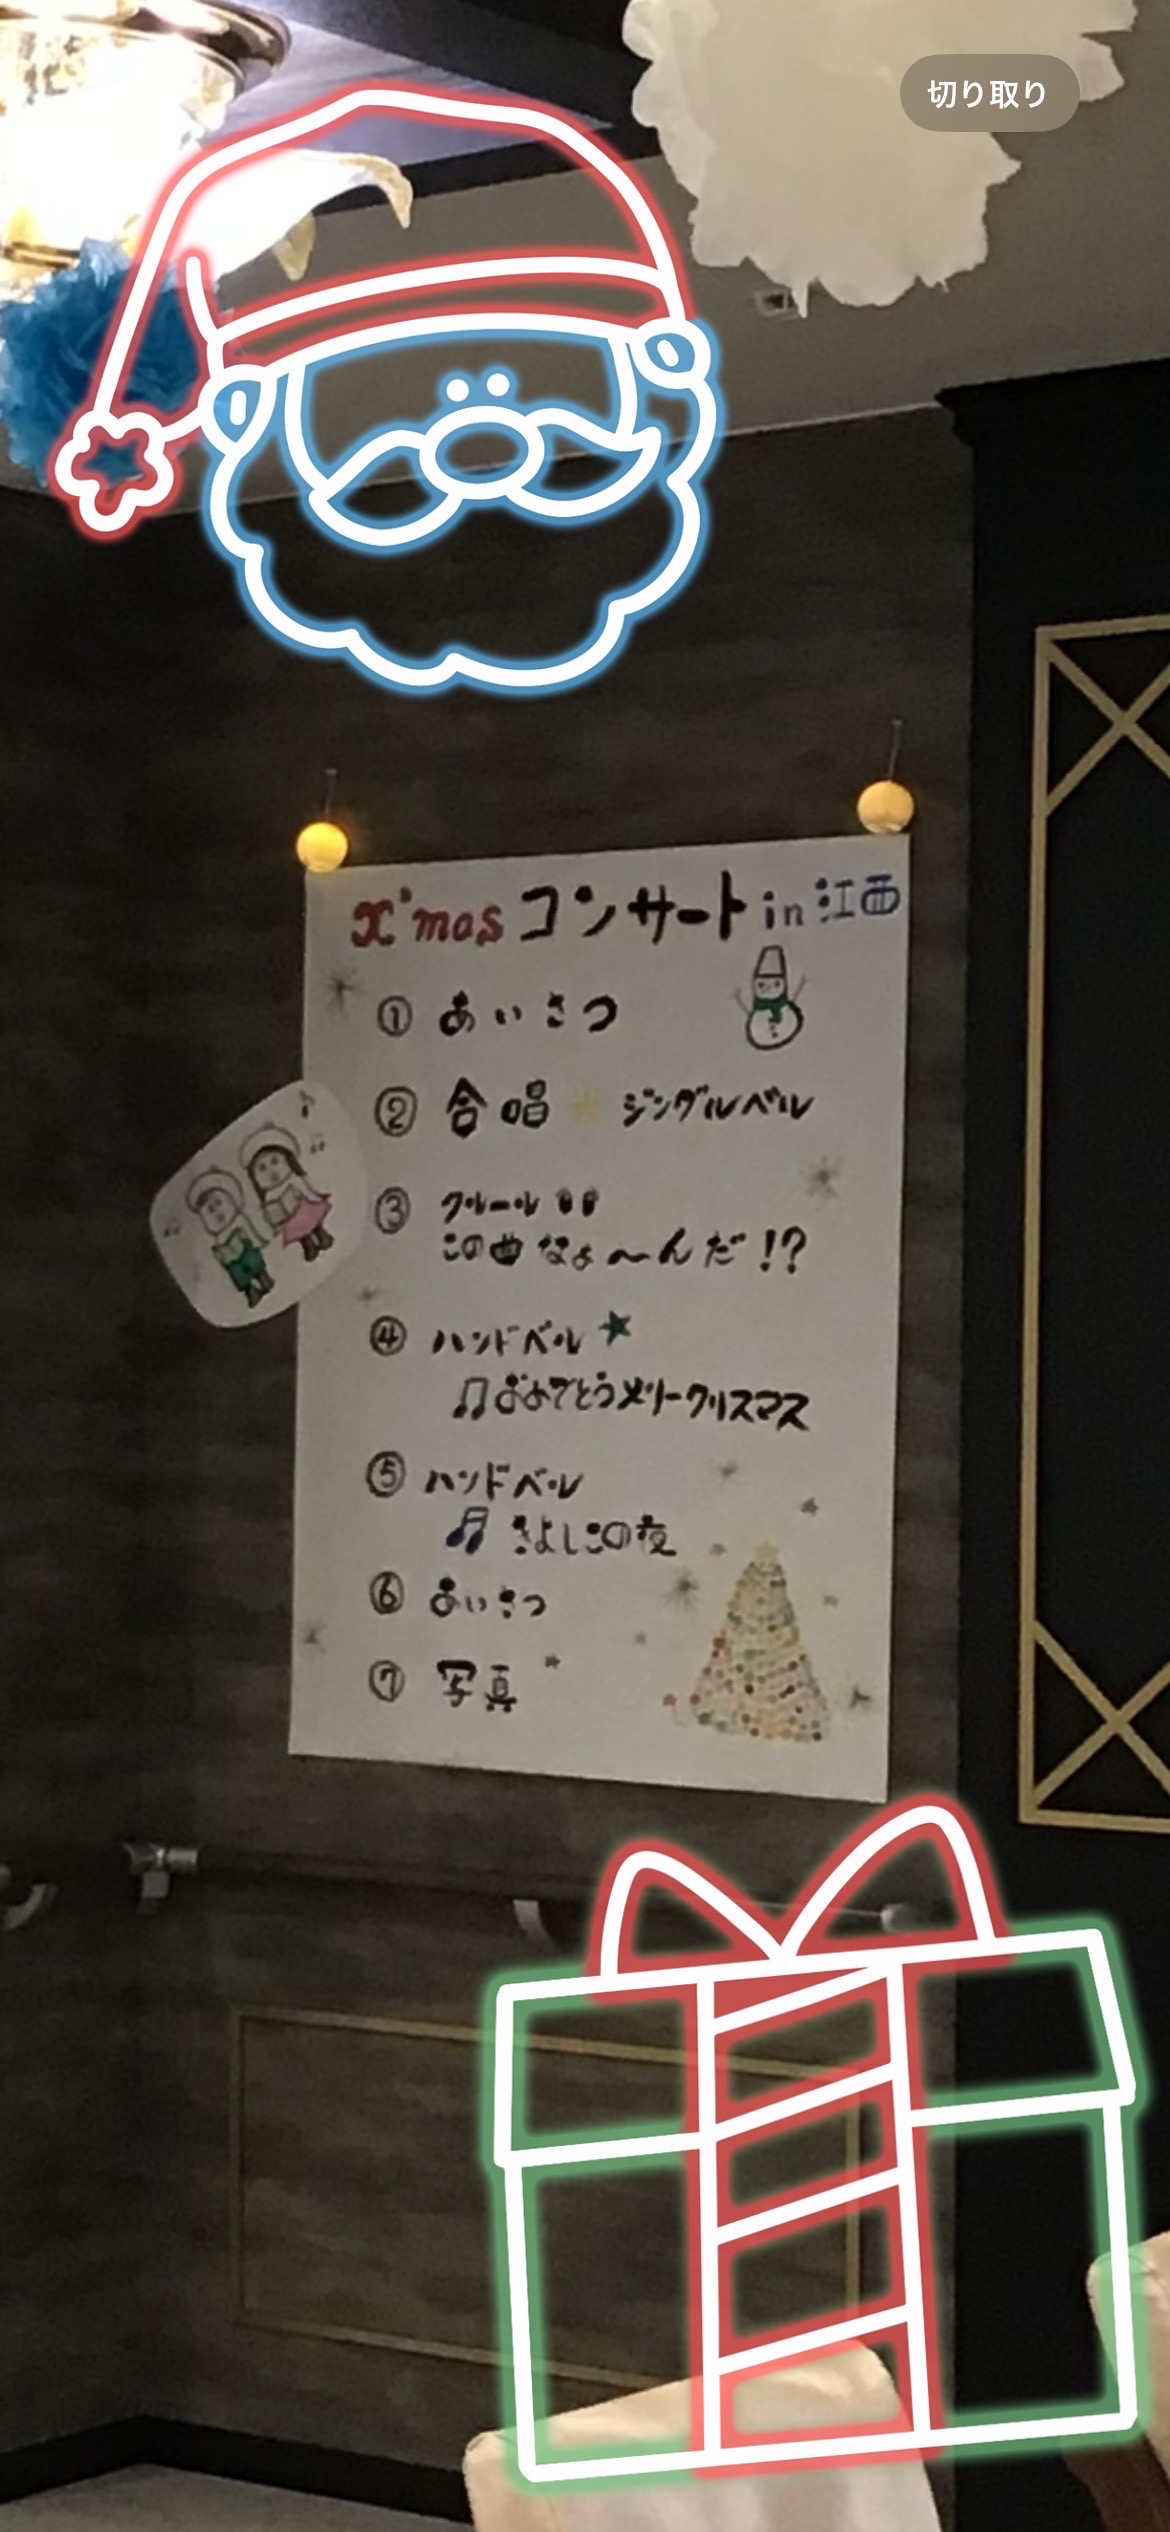 切り取り
X'mas コンサート in 江西
① あいさつ
② 合唱 ジングルベル
③ クルール
この曲なぁ〜んだ!?
④ ハンドベル★
♫おめでとうメリークリスマス
⑤ ハンドベル
♫ きよしこの夜
⑥ あいさつ
⑦ 写真